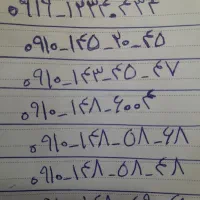 ۰۹۱۰_۱۴۵_۲۰_۴۵
۰۹۱۰_۱۴۳_۴۵_۴۷
۰۹۱۰_۱۴۸_۶۰۰۴
۰۹۱۰_۱۴۸_۵۸_۶۸
۰۹۱۰_۱۴۸_۵۸_۴۸